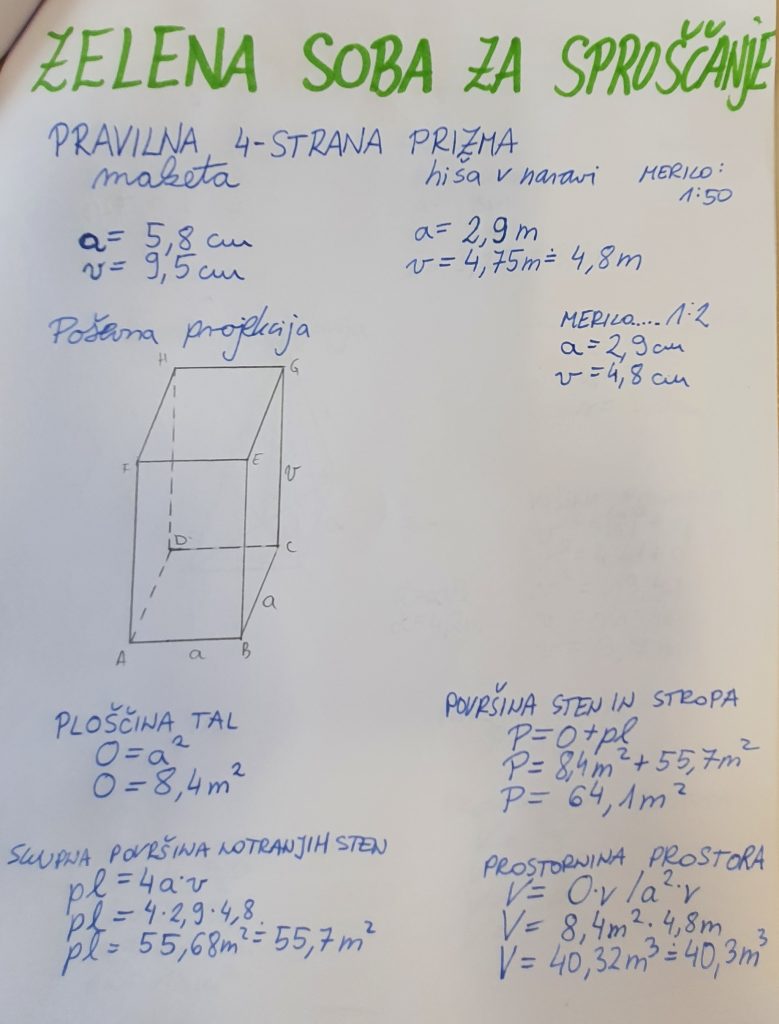 ZELENA SOBA ZA SPROŠČANJE
PRAVILNA 4-STRANA PRIZMA
maketa
hiša v naravi
MERILO:
1:50
a= 5,8 cm
v= 9,5 cm
a= 2,9 m
v= 4,75m ≐ 4,8m
Poševna projekcija
MERILO.... 1:2
a= 2,9 cm
v= 4,8 cm
H
G
F
E
v
D
C
a
A
a
B
PLOŠČINA TAL
O=a²
O=8,4m²
POVRŠINA STEN IN STROPA
P=O+pl
P= 8,4m²+55,7m²
P= 64,1m²
SKUPNA POVRŠINA NOTRANJIH STEN
pl=4a·v
pl= 4·2,9·4,8
pl= 55,68m² ≐ 55,7m²
PROSTORNINA PROSTORA
V= O·v /a²·v
V= 8,4m²·4,8m
V= 40,32m³ ≐ 40,3m³